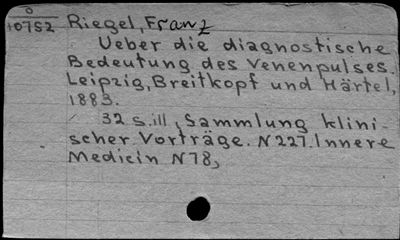 10752 Riegel, Franz
Ueber die diagnostische
Bedeutung des Venenpulses.
Leipzig, Breitkopf und Härtel,
1883.
32 s. ill, Sammlung klini-
scher Vorträge. N 227. Innere
Medicin N 78,